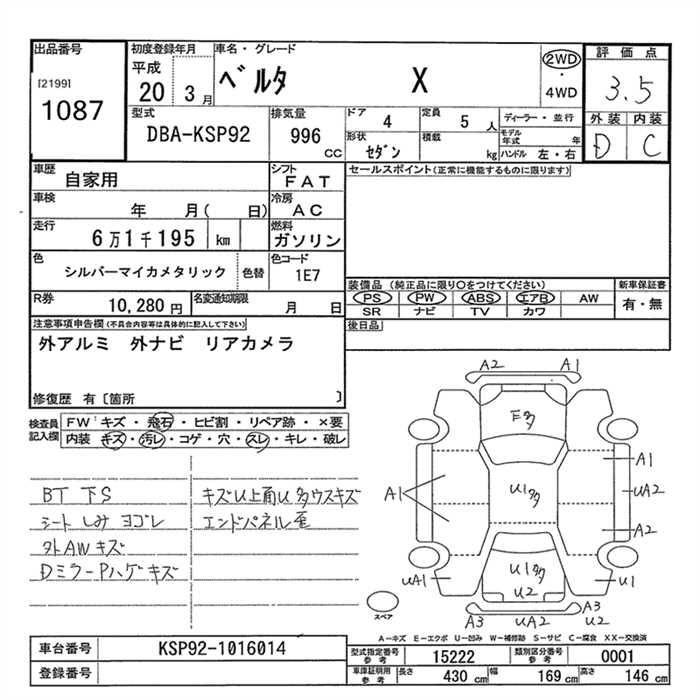 出品番号
[2199]
1087
初度登録年月
平成
20 3月
車名・グレード
ベルタ X
2WD
・
4WD
評価点
3.5
外装 内装
D C
型式
DBA-KSP92
排気量
996
CC
ドア
4
定員
5 人
ディーラー・並行
モデル年式 年
形状
セダン
積載
kg
ハンドル 左・右
車歴
自家用
シフト
FAT
セールスポイント(正常に機能するものに限ります)
車検
年 月( 日)
冷房
AC
走行
6万1千195 km
燃料
ガソリン
色
シルバーマイカメタリック
色替
色コード
1E7
装備品 (純正品に限り○をつけてください)
新車保証書
PS PW ABS エアB AW
有・無
SR ナビ TV カワ
R券
10,280 円
名変通知期限
月 日
後日品
注意事項申告欄(不具合内容等は具体的に記入して下さい)
外アルミ 外ナビ リアカメラ
修復歴 有〔箇所 〕
検査員
記入欄
FW:キズ・飛石・ヒビ割・リペア跡・×要
内装 キズ・汚レ・コゲ・穴・スレ・キレ・破レ
BT 下S
シート しみ ヨゴレ
外AWキズ
Dミラー Pハゲキズ
キズU上角U 多ウスキズ
エンドパネル歪
A2 A1
F多
A1
U1多
A1
UA2
A2
UA1
U1多
U2
U1
A3 UA2 A3
U2
スペア
A-キズ E-エクボ U-凹み W-補修跡 S-サビ C-腐食 XX-交換済
車台番号
KSP92-1016014
登録番号
型式指定番号
参考
15222
類別区分番号
参考
0001
車庫証明用
参考
長さ
430 cm
幅
169 cm
高さ
146 cm